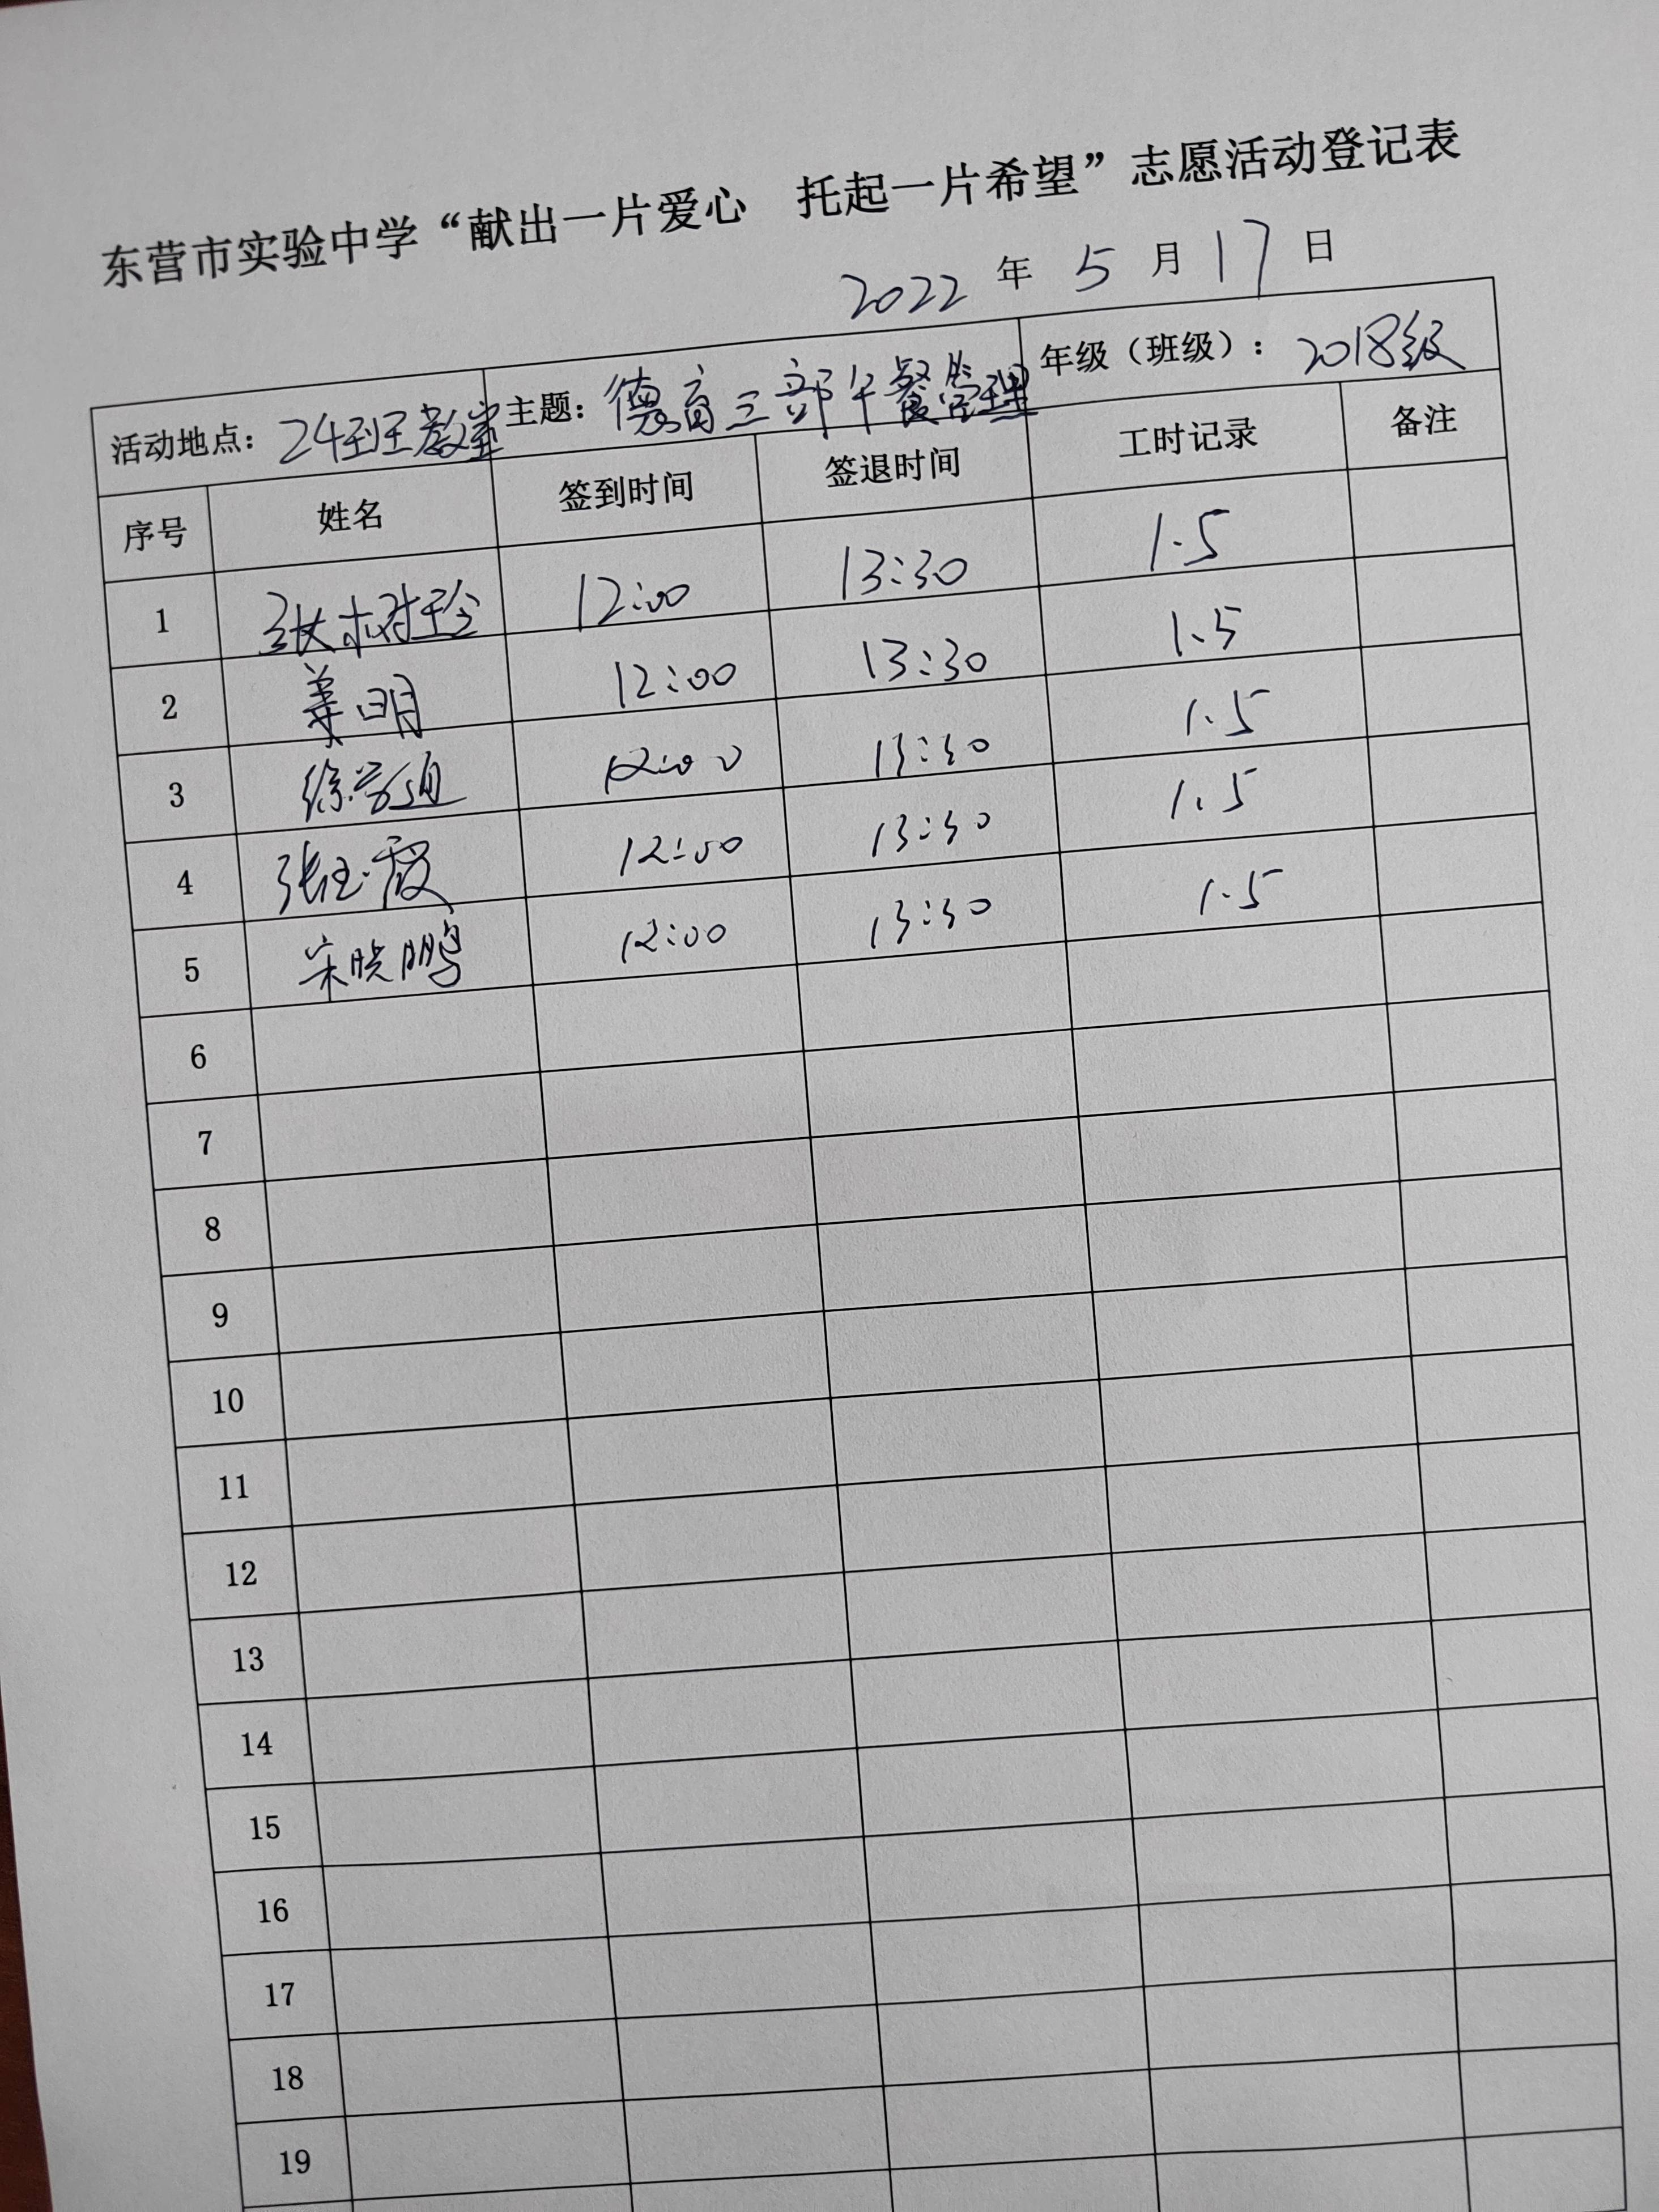 东营市实验中学“献出一片爱心 托起一片希望”志愿活动登记表
2022 年 5 月 17 日
活动地点：24班教室 主题：德育三部午餐管理 年级（班级）：2018级
序号 姓名 签到时间 签退时间 工时记录 备注
1 张树 12:00 13:30 1.5
2 姜明 12:00 13:30 1.5
3 徐 12:00 13:30 1.5
4 张玉霞 12:00 13:30 1.5
5 宋晓鹏 12:00 13:30 1.5
6
7
8
9
10
11
12
13
14
15
16
17
18
19